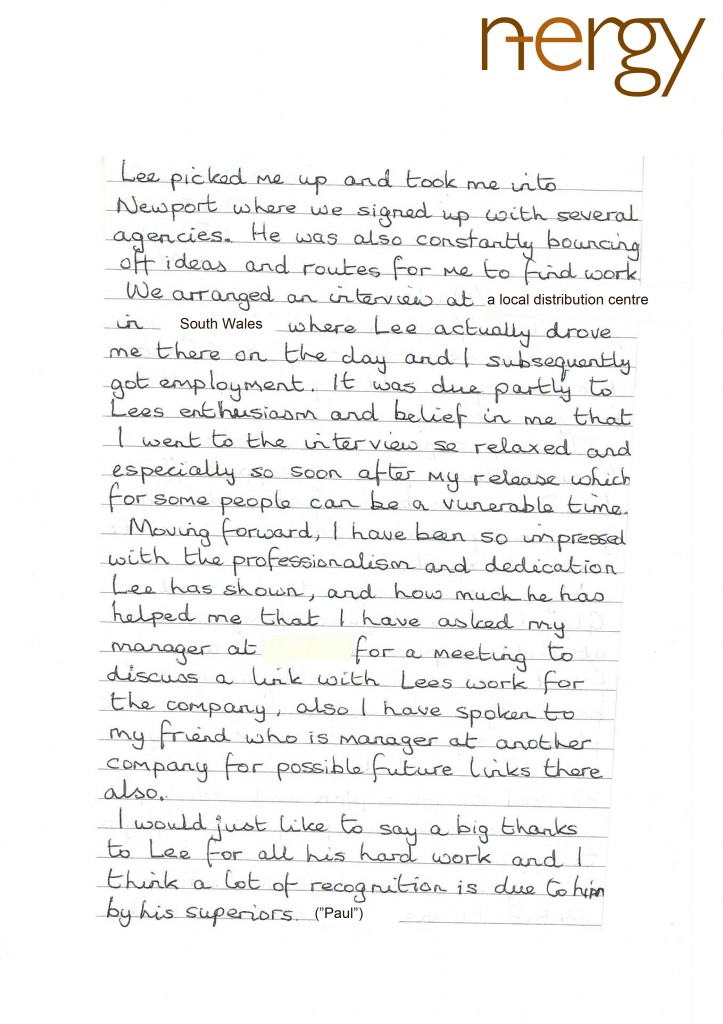 n-ergy
Lee picked me up and took me into
Newport where we signed up with several
agencies. He was also constantly bouncing
off ideas and routes for me to find work
We arranged an interview at a local distribution centre
in South Wales where Lee actually drove
me there on the day and I subsequently
got employment. It was due partly to
Lees enthusiasm and belief in me that
I went to the interview so relaxed and
especially so soon after my release which
for some people can be a vunerable time.
Moving forward, I have been so impressed
with the professionalism and dedication
Lee has shown, and how much he has
helped me that I have asked my
manager at for a meeting to
discuss a link with Lees work for
the company, also I have spoken to
my friend who is manager at another
company for possible future links there
also.
I would just like to say a big thanks
to Lee for all his hard work and I
think a lot of recognition is due to him
by his superiors. ("Paul")